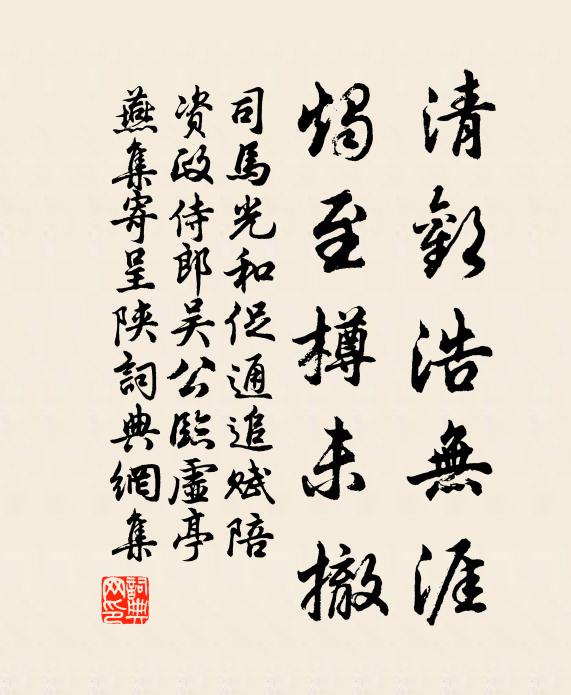 清歡浩無涯
燭至樽未撤
司馬光和促通追赋陪
资政侍郎吴公臨虛亭
燕集寄呈陝詞典網集
詞典網印